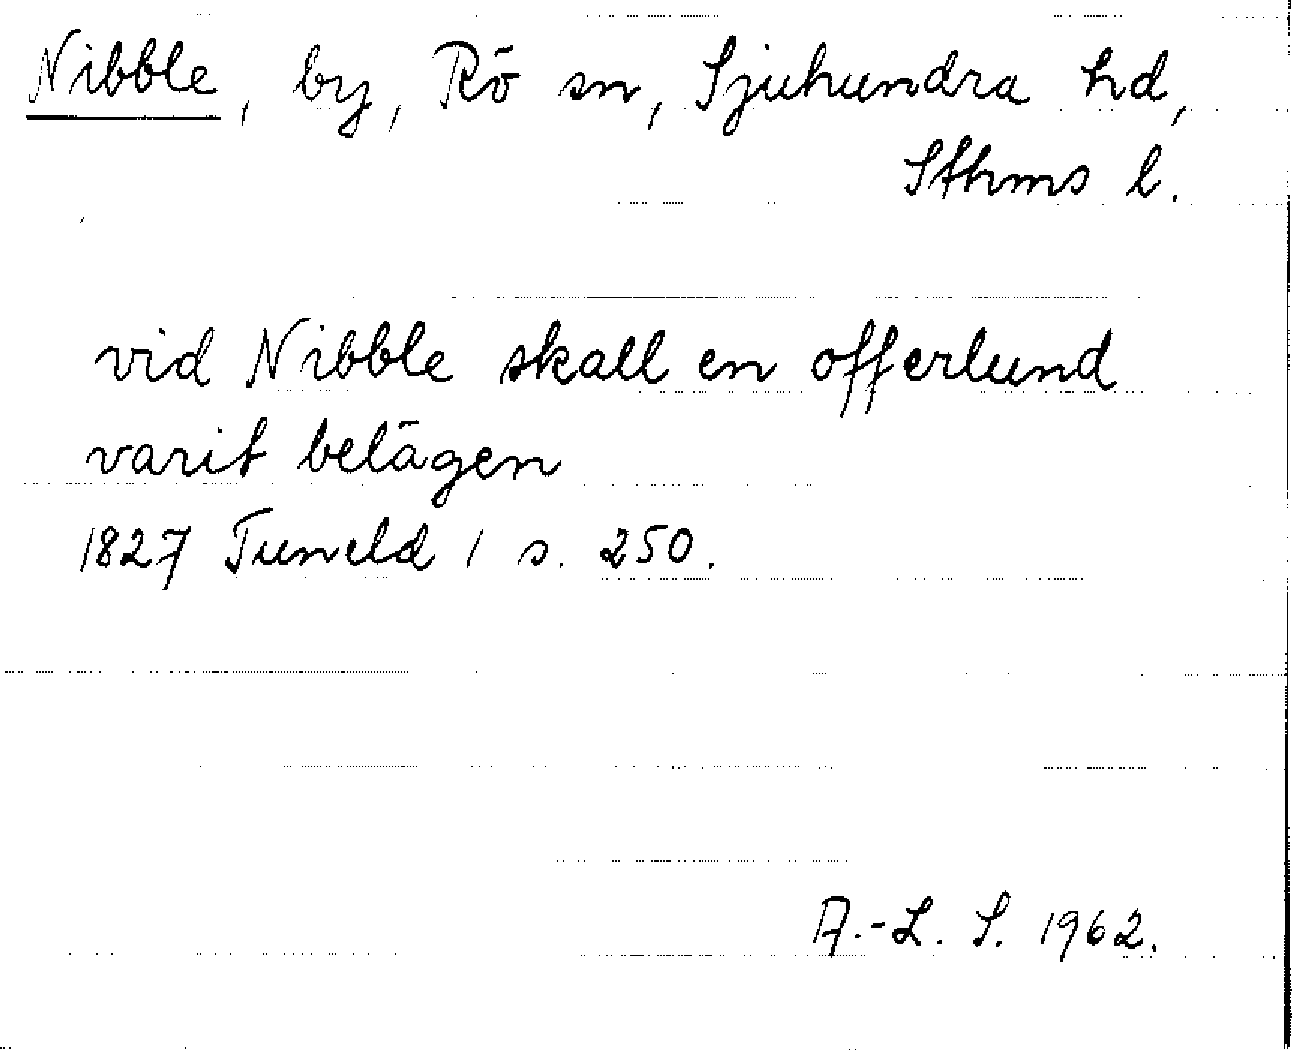 Nibble, by, Rö sn, Sjuhundra hd,
Sthms l.
vid Nibble skall en offerlund
varit belägen
1827 Tuneld 1 s. 250.
A.-L. S. 1962.